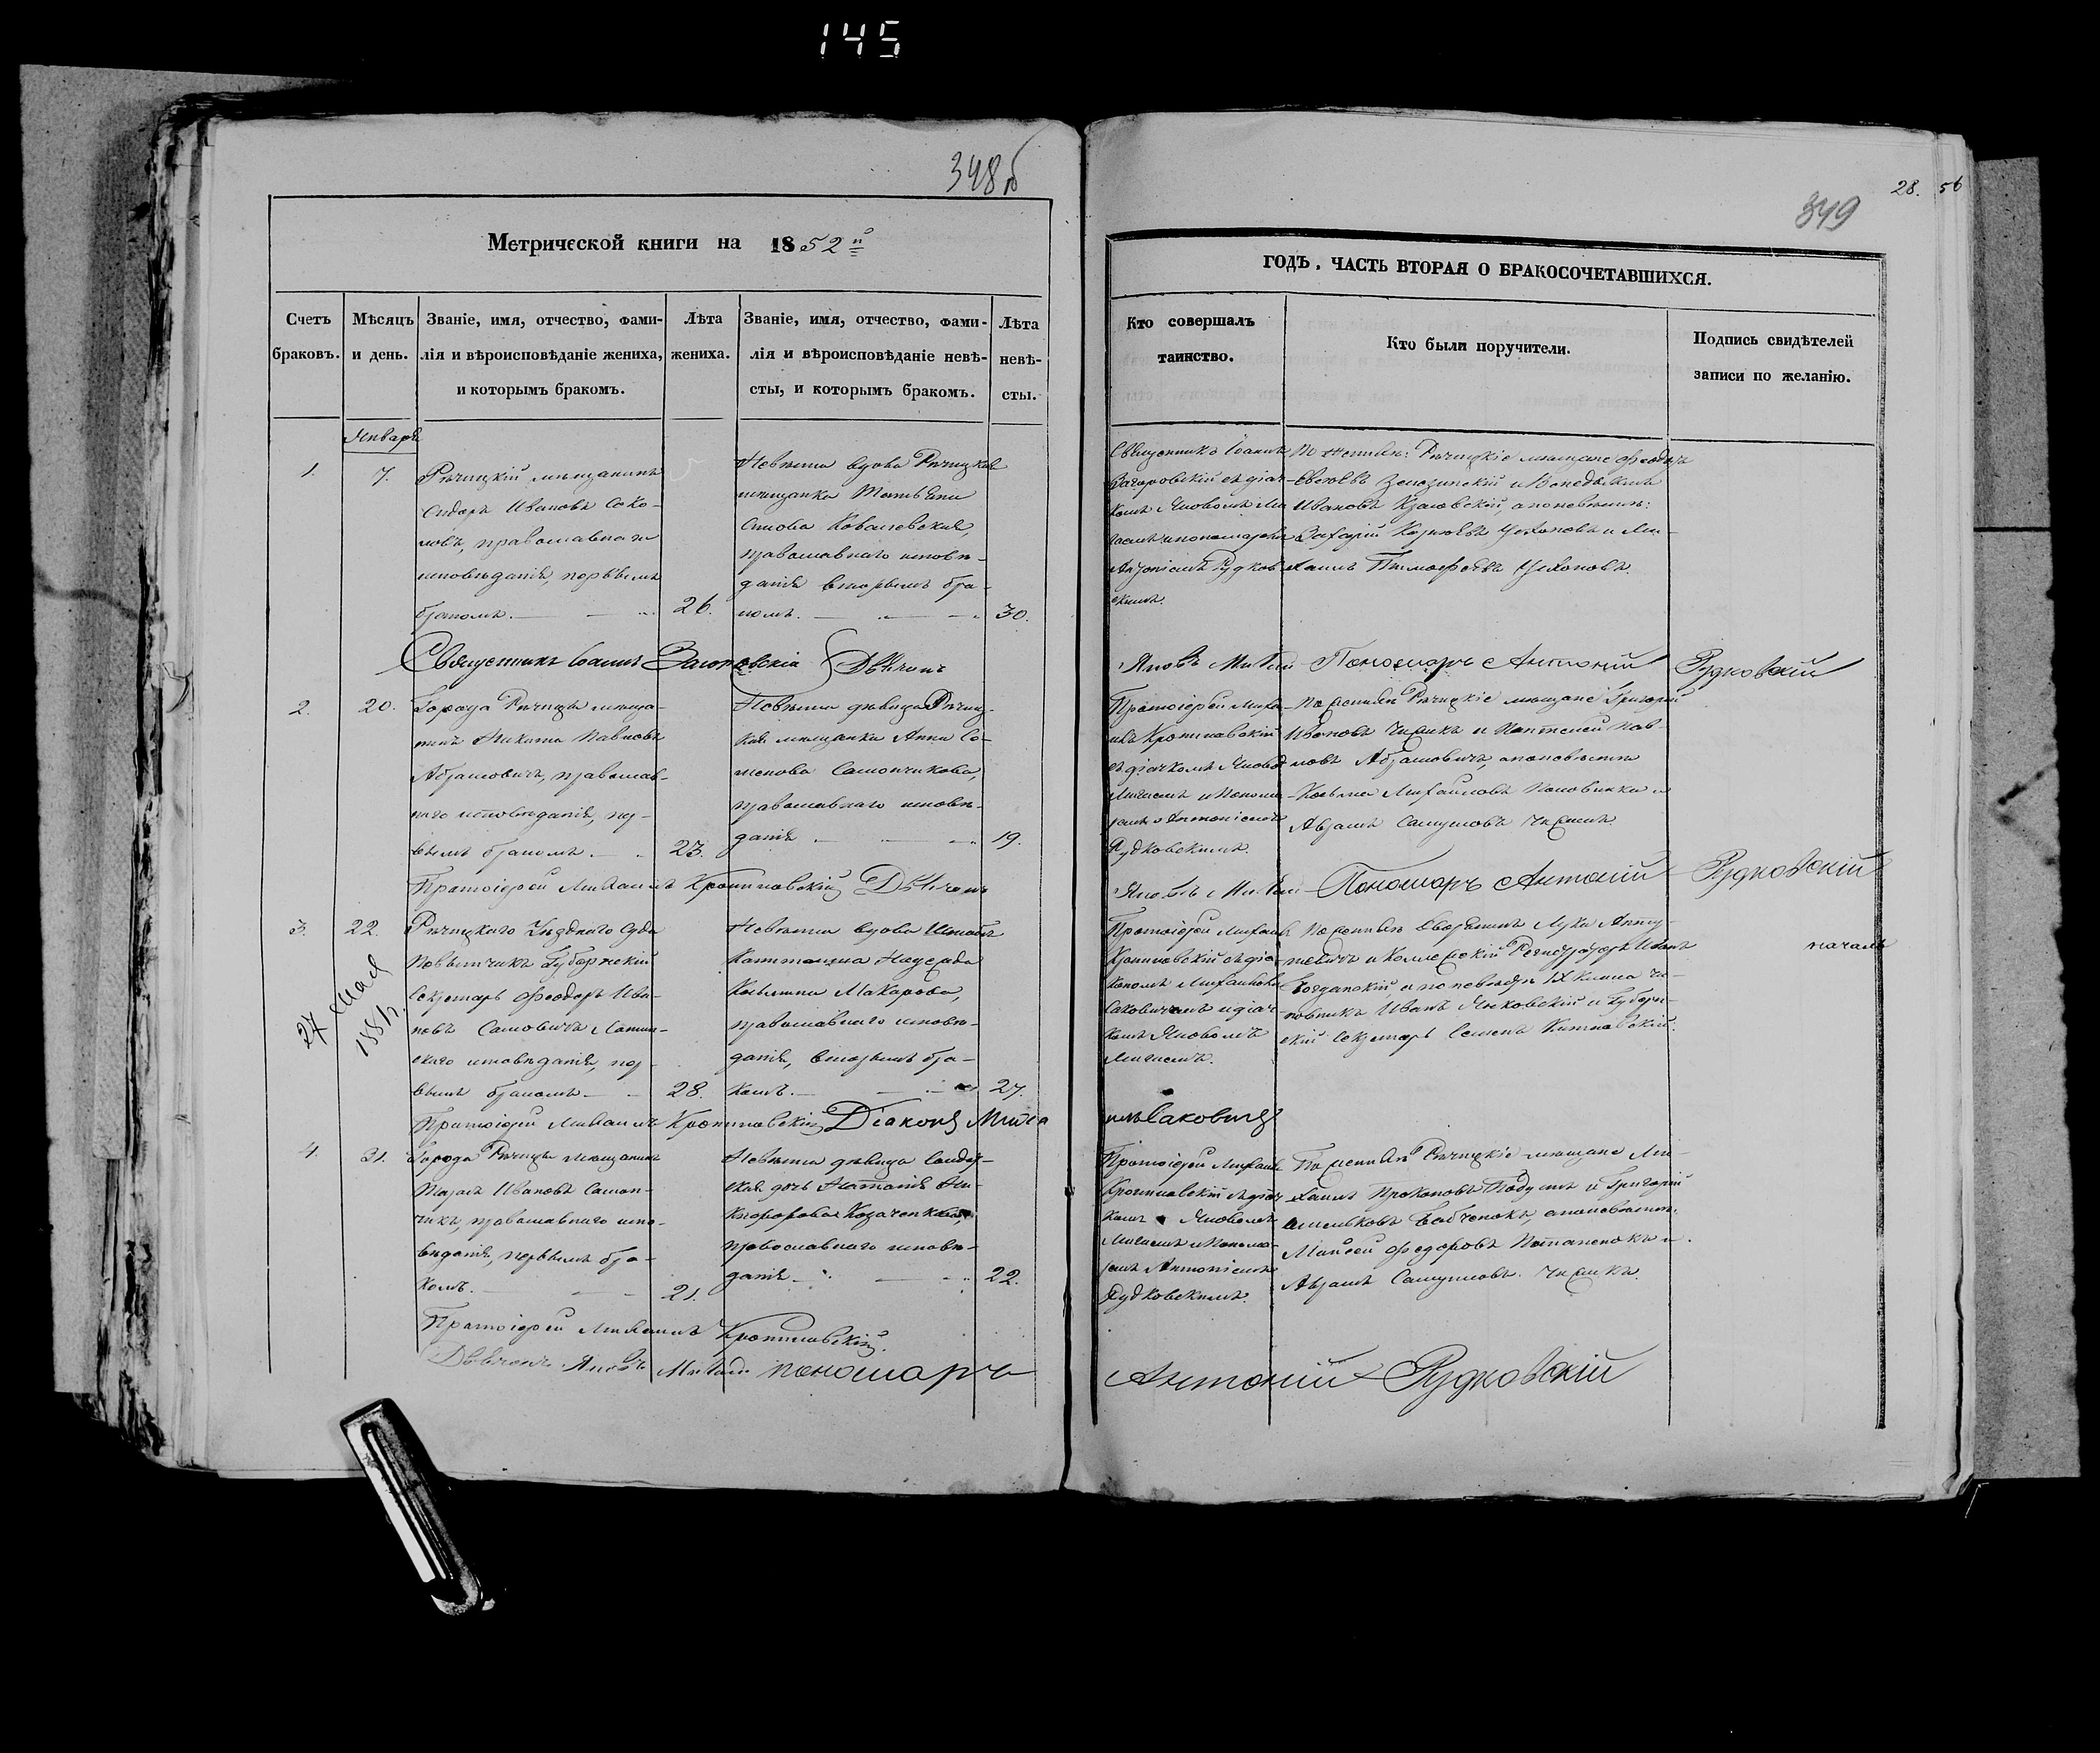 145
348б
Метрической книги на 1852й
Счетъ браковъ.
Мѣсяцъ и день.
Званіе, имя, отчество, фами-
лія и вѣроисповѣданіе жениха,
и которымъ бракомъ.
Лѣта жениха.
Званіе, имя, отчество, фами-
лія и вѣроисповѣданіе невѣ-
сты, и которымъ бракомъ.
Лѣта невѣ-
сты.
Январь
1.
7.
Рѣчицкій мѣщанинъ
Сидоръ Ивановъ Соко-
ловъ, православнаго
исповѣданія, первымъ
бракомъ.
26.
Невѣста вдова Рѣчицкая
мѣщанка
Ковалевская,
православнаго исповѣ-
данія вторымъ бра-
комъ.
30.
Священникъ Іоаннъ Загоровскій Дьячокъ
2.
20.
Города Рѣчицы мѣща-
нинъ Никита Павловъ
Абрамовичъ, православ-
наго исповѣданія, пер-
вымъ бракомъ
23.
Невѣста дѣвица Рѣчиц-
кая мѣщанка Анна Се-
менова Самончикова,
православнаго исповѣ-
данія
19.
Протоіерей Михаилъ Кропиловскій Дьячокъ
3.
22.
27 Мая
Рѣчицкаго Уѣзднаго Суда
Повытчикъ Губернскій
Секретарь Феодоръ Ива-
новъ Самовичъ Латин-
скаго исповѣданія, пер-
вымъ бракомъ
28.
Невѣста вдова Штабъ
Капитанша Надежда
Козьмина Макарова,
православнаго исповѣ-
данія, вторымъ бра-
комъ.
27.
Протоіерей Михаилъ Кропиловскій Діаконъ Миха
4.
31.
Города Рѣчицы мѣщанинъ
Тарасъ Ивановъ Самон-
чикъ, православнаго испо-
вѣданія, первымъ бра-
комъ.
21.
Невѣста дѣвица Солдат-
ская дочь Наталія Ни-
кифорова Козаченкова,
православнаго исповѣ-
данія
22.
Протоіерей Михаилъ Кропиловскій.
Дьячокъ Яковъ Мигай пономарь
28. 56
349
ГОДЪ, ЧАСТЬ ВТОРАЯ О БРАКОСОЧЕТАВШИХСЯ.
Кто совершалъ
таинство.
Кто были поручители.
Подпись свидѣтелей
записи по желанію.
Священникъ Іоаннъ
Загоровскій съ дьяч-
комъ Яковомъ Ми
гаемъ и пономаремъ
Антоніемъ Рудков
скимъ.
По женихѣ: Рѣчицкіе мѣщане Феодоръ
Евсѣевъ и Венедыктъ
Ивановъ Красовскій, а по невѣстѣ:
Захарій Карповъ Цехановъ и Ми-
хаилъ Тимофеевъ Цехановъ.
Яковъ Мигай Пономарь Антоній Рудковскій
Протоіерей Миха-
илъ Кропиловскій
съ дьячкомъ Яковомъ
Мигаемъ и Понома-
ремъ Антоніемъ
Рудковскимъ.
По женихѣ Рѣчицкіе мѣщане Григорій
Ивановъ Чижикъ и Пантелей Пав-
ловъ Абрамовичъ, а по невѣстѣ
Козьма Михайловъ Половинка и
Аврамъ Самуиловъ Чижикъ.
Яковъ Мигай Пономарь Антоній Рудковскій
Протоіерей Михаилъ
Кропиловскій съ діа-
кономъ Михаиломъ
Саковичемъ и дьяч-
комъ Яковомъ
Мигаемъ.
По женихѣ Дворянинъ Лука
и Коллежскій Регистраторъ Иванъ
Богданскій, а по невѣстѣ IX класса чи-
новникъ Иванъ Янковскій и Губерн-
скій Секретарь Семенъ
началъ
илъ Саковичъ
Протоіерей Михаилъ
Кропиловскій съ дьяч
комъ Яковомъ
Мигаемъ и Понома-
ремъ Антоніемъ
Рудковскимъ.
По женихѣ Рѣчицкіе мѣщане Ми-
хаилъ Прокоповъ и Григорій
Бабченокъ, а по невѣстѣ:
Моисей Федоровъ Потапенокъ и
Аврамъ Самуиловъ Чижикъ.
Антоній Рудковскій